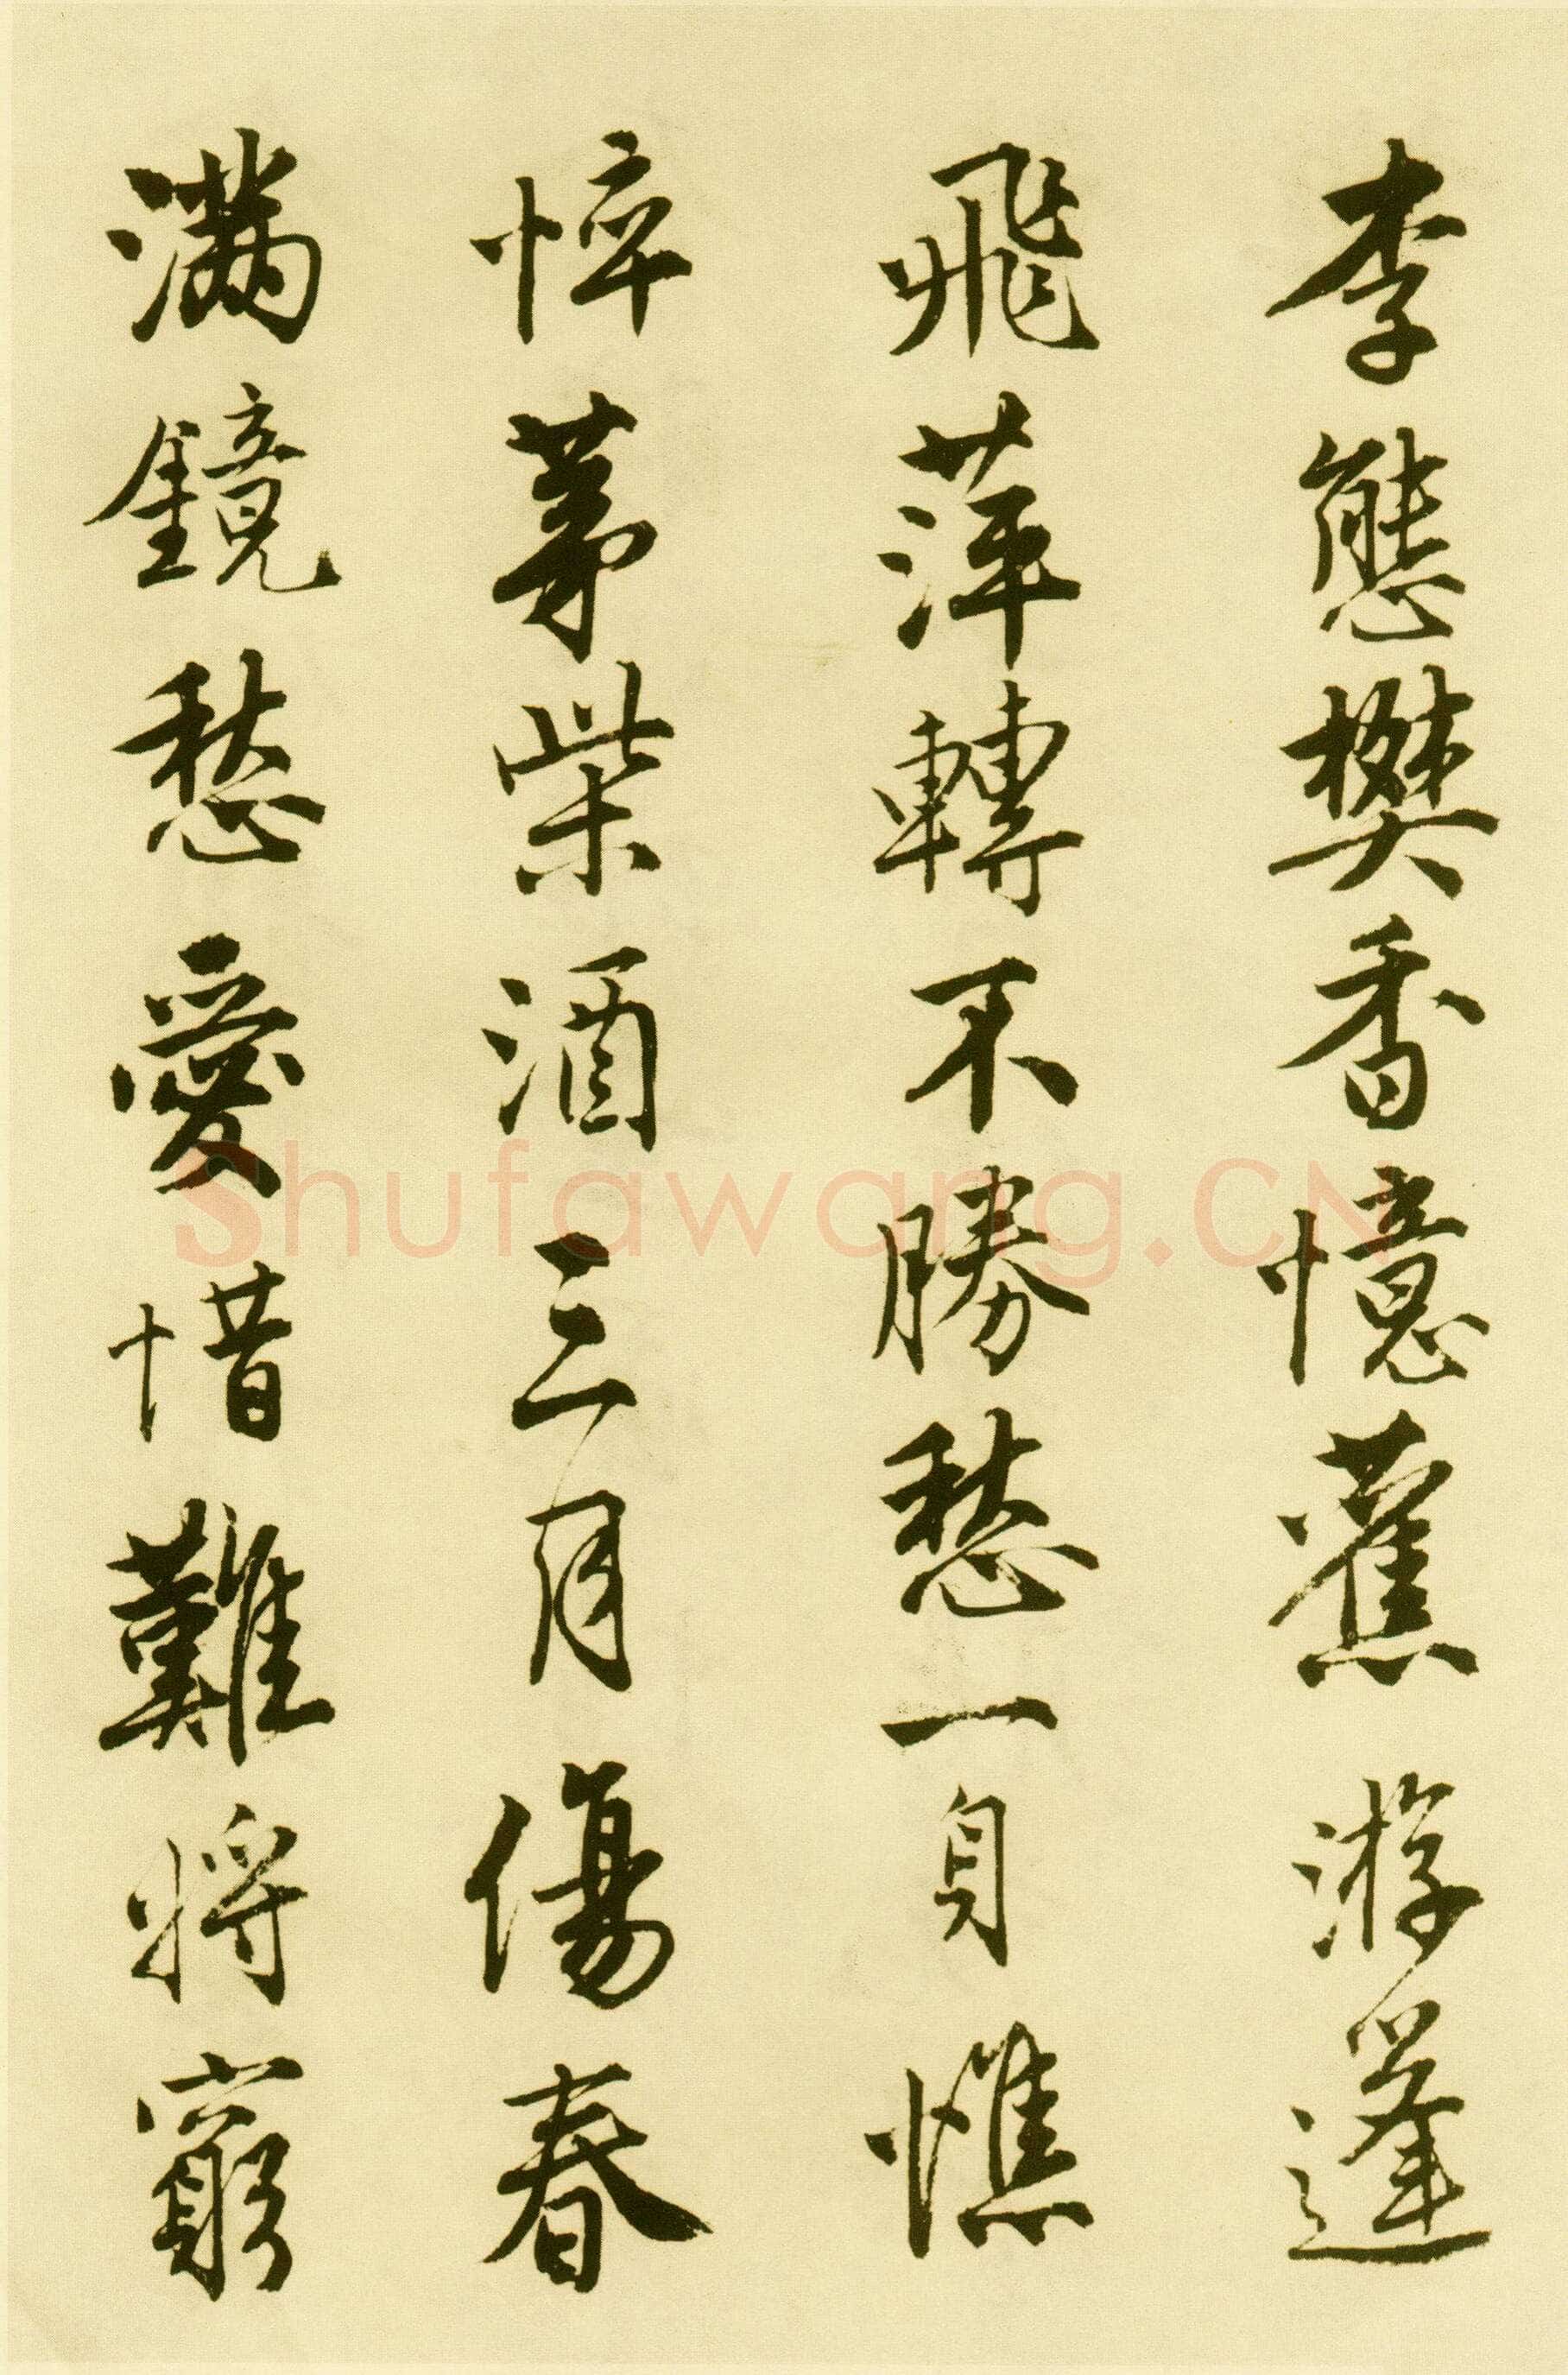 李態樊香憶舊游蓬
飛萍轉不勝愁一身憔
悴茅柴酒三月傷春
滿鏡愁愛惜難將窮
Shufawang.CN